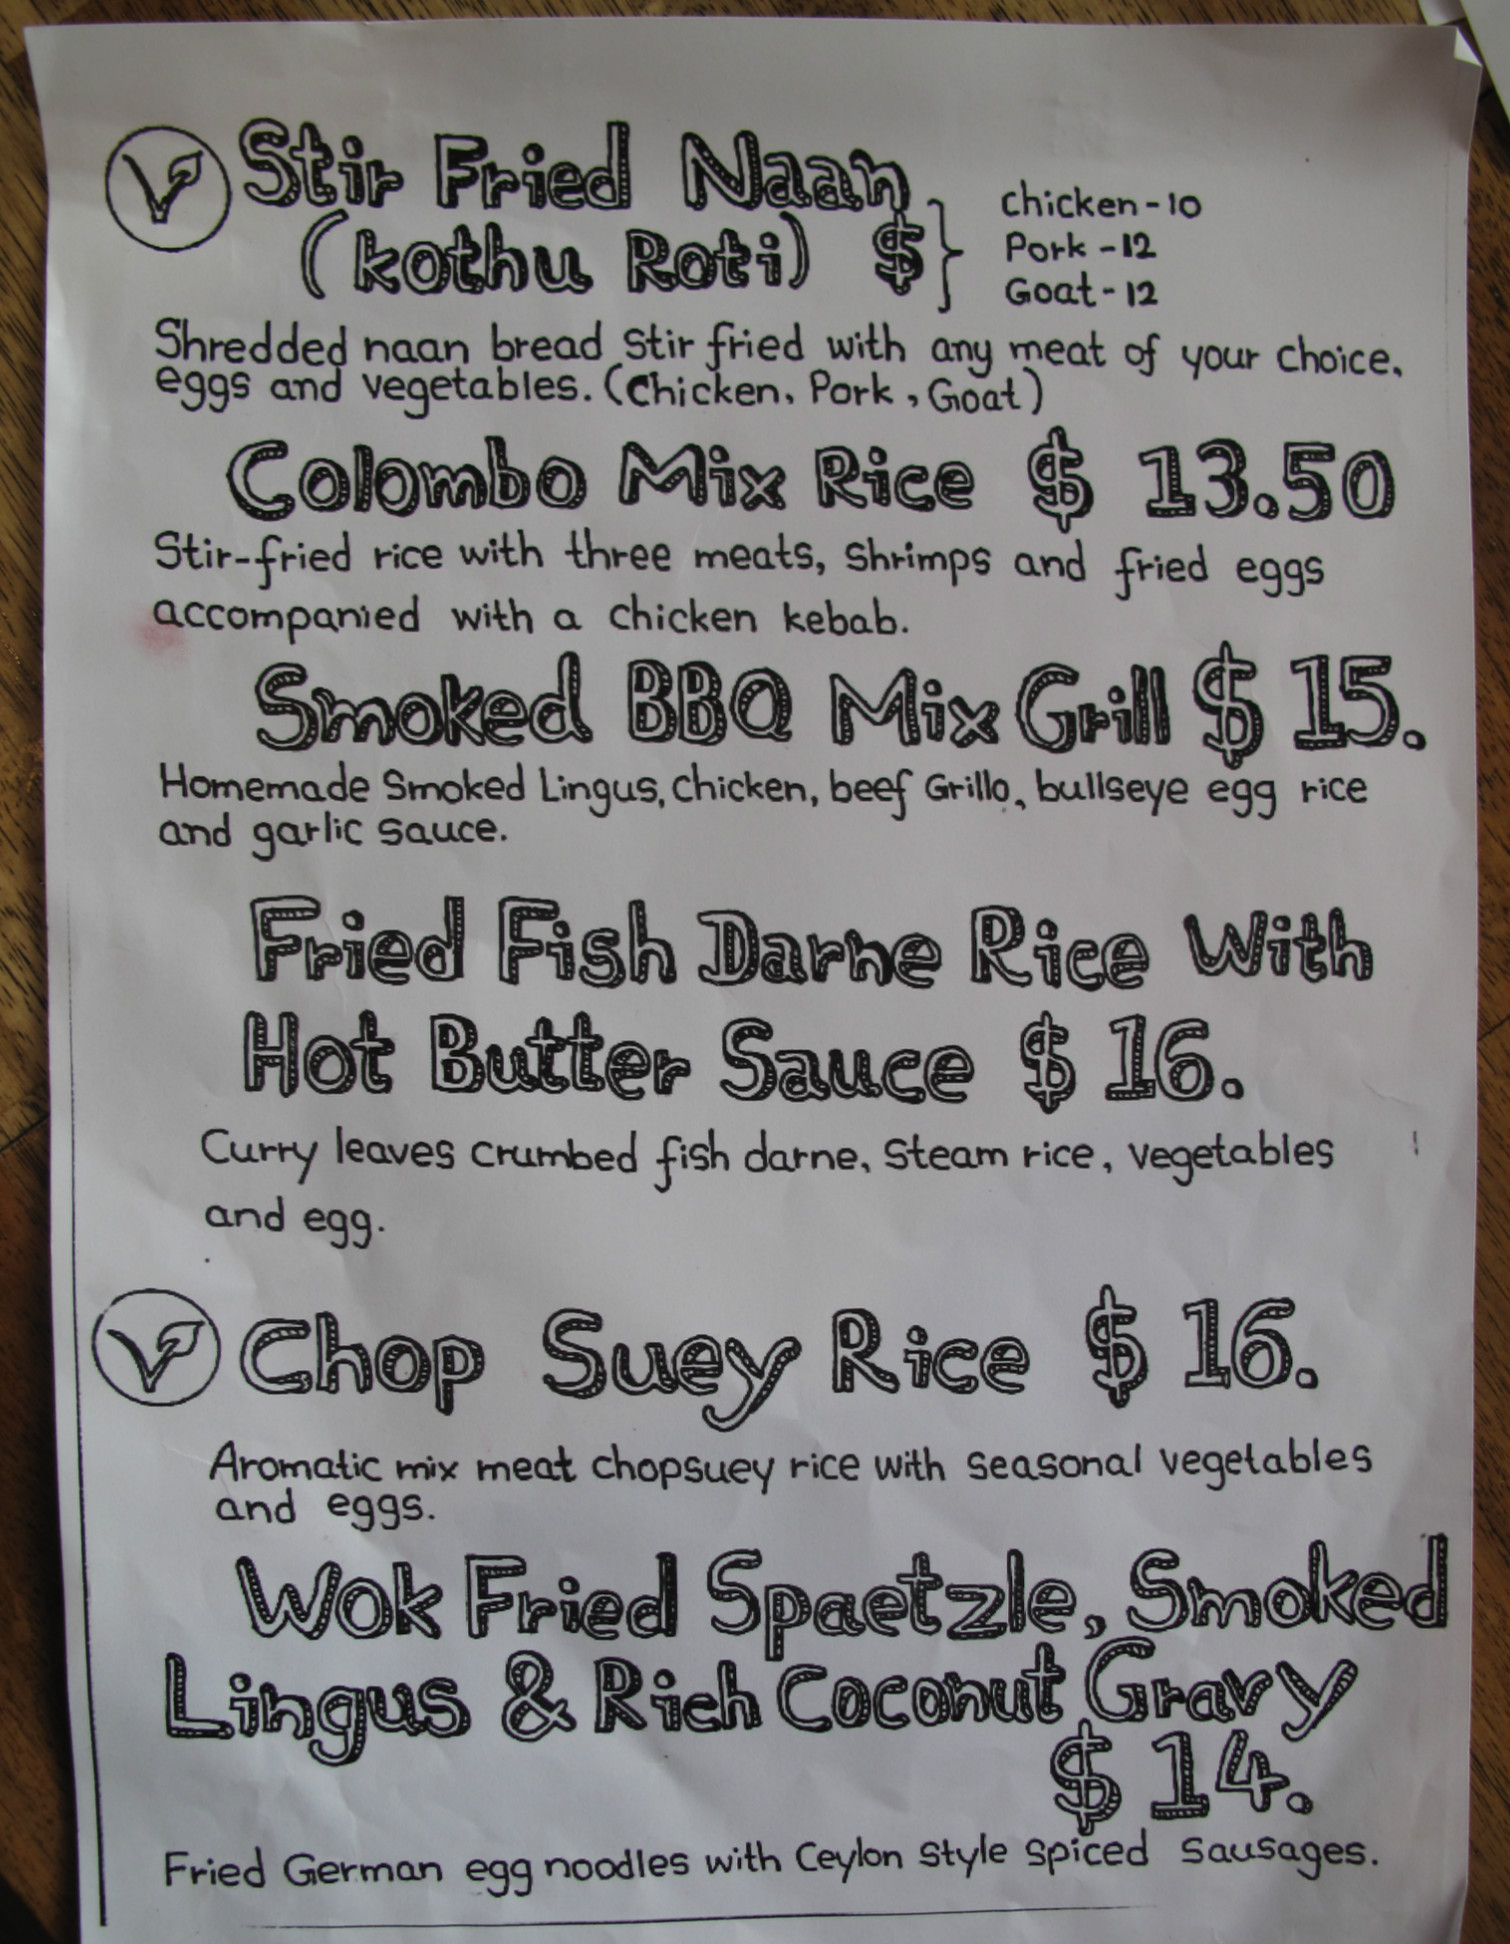 Stir Fried Naan
(kothu Roti) $ } Chicken-10
Pork-12
Goat-12
Shredded naan bread Stir fried with any meat of your choice,
eggs and vegetables. (Chicken, Pork, Goat)
Colombo Mix Rice $ 13.50
Stir-fried rice with three meats, Shrimps and fried eggs
accompanied with a chicken kebab.
Smoked BBQ Mix Grill $ 15.
Homemade Smoked Lingus, chicken, beef Grillo, bullseye egg rice
and garlic sauce.
Fried Fish Darne Rice With
Hot Butter Sauce $ 16.
Curry leaves crumbed fish darne, Steam rice, vegetables
and egg.
Chop Suey Rice $ 16.
Aromatic mix meat chopsuey rice with seasonal vegetables
and eggs.
Wok Fried Spaetzle, Smoked
Lingus & Rich Coconut Gravy
$ 14.
Fried German egg noodles with Ceylon Style Spiced Sausages.